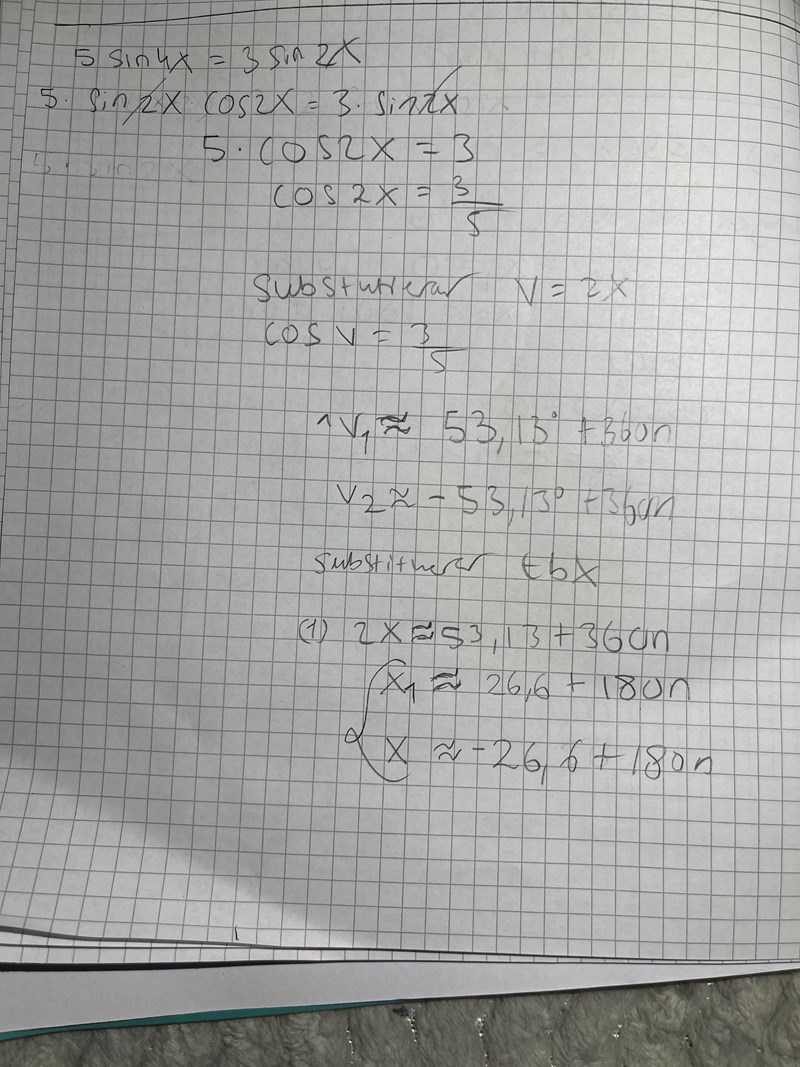 5 sin4x = 3 sin 2x
5· sin2x cos2x = 3· sin2x
5· cos2x = 3
cos 2x = 3/5
substituerar v = 2x
cos v = 3/5
v₁ ≈ 53,13° +360n
v₂ ≈ -53,13° +360n
substituerar tbx
(1) 2x ≈ 53,13+360n
x₁ ≈ 26,6 + 180n
x ≈ -26,6+180n